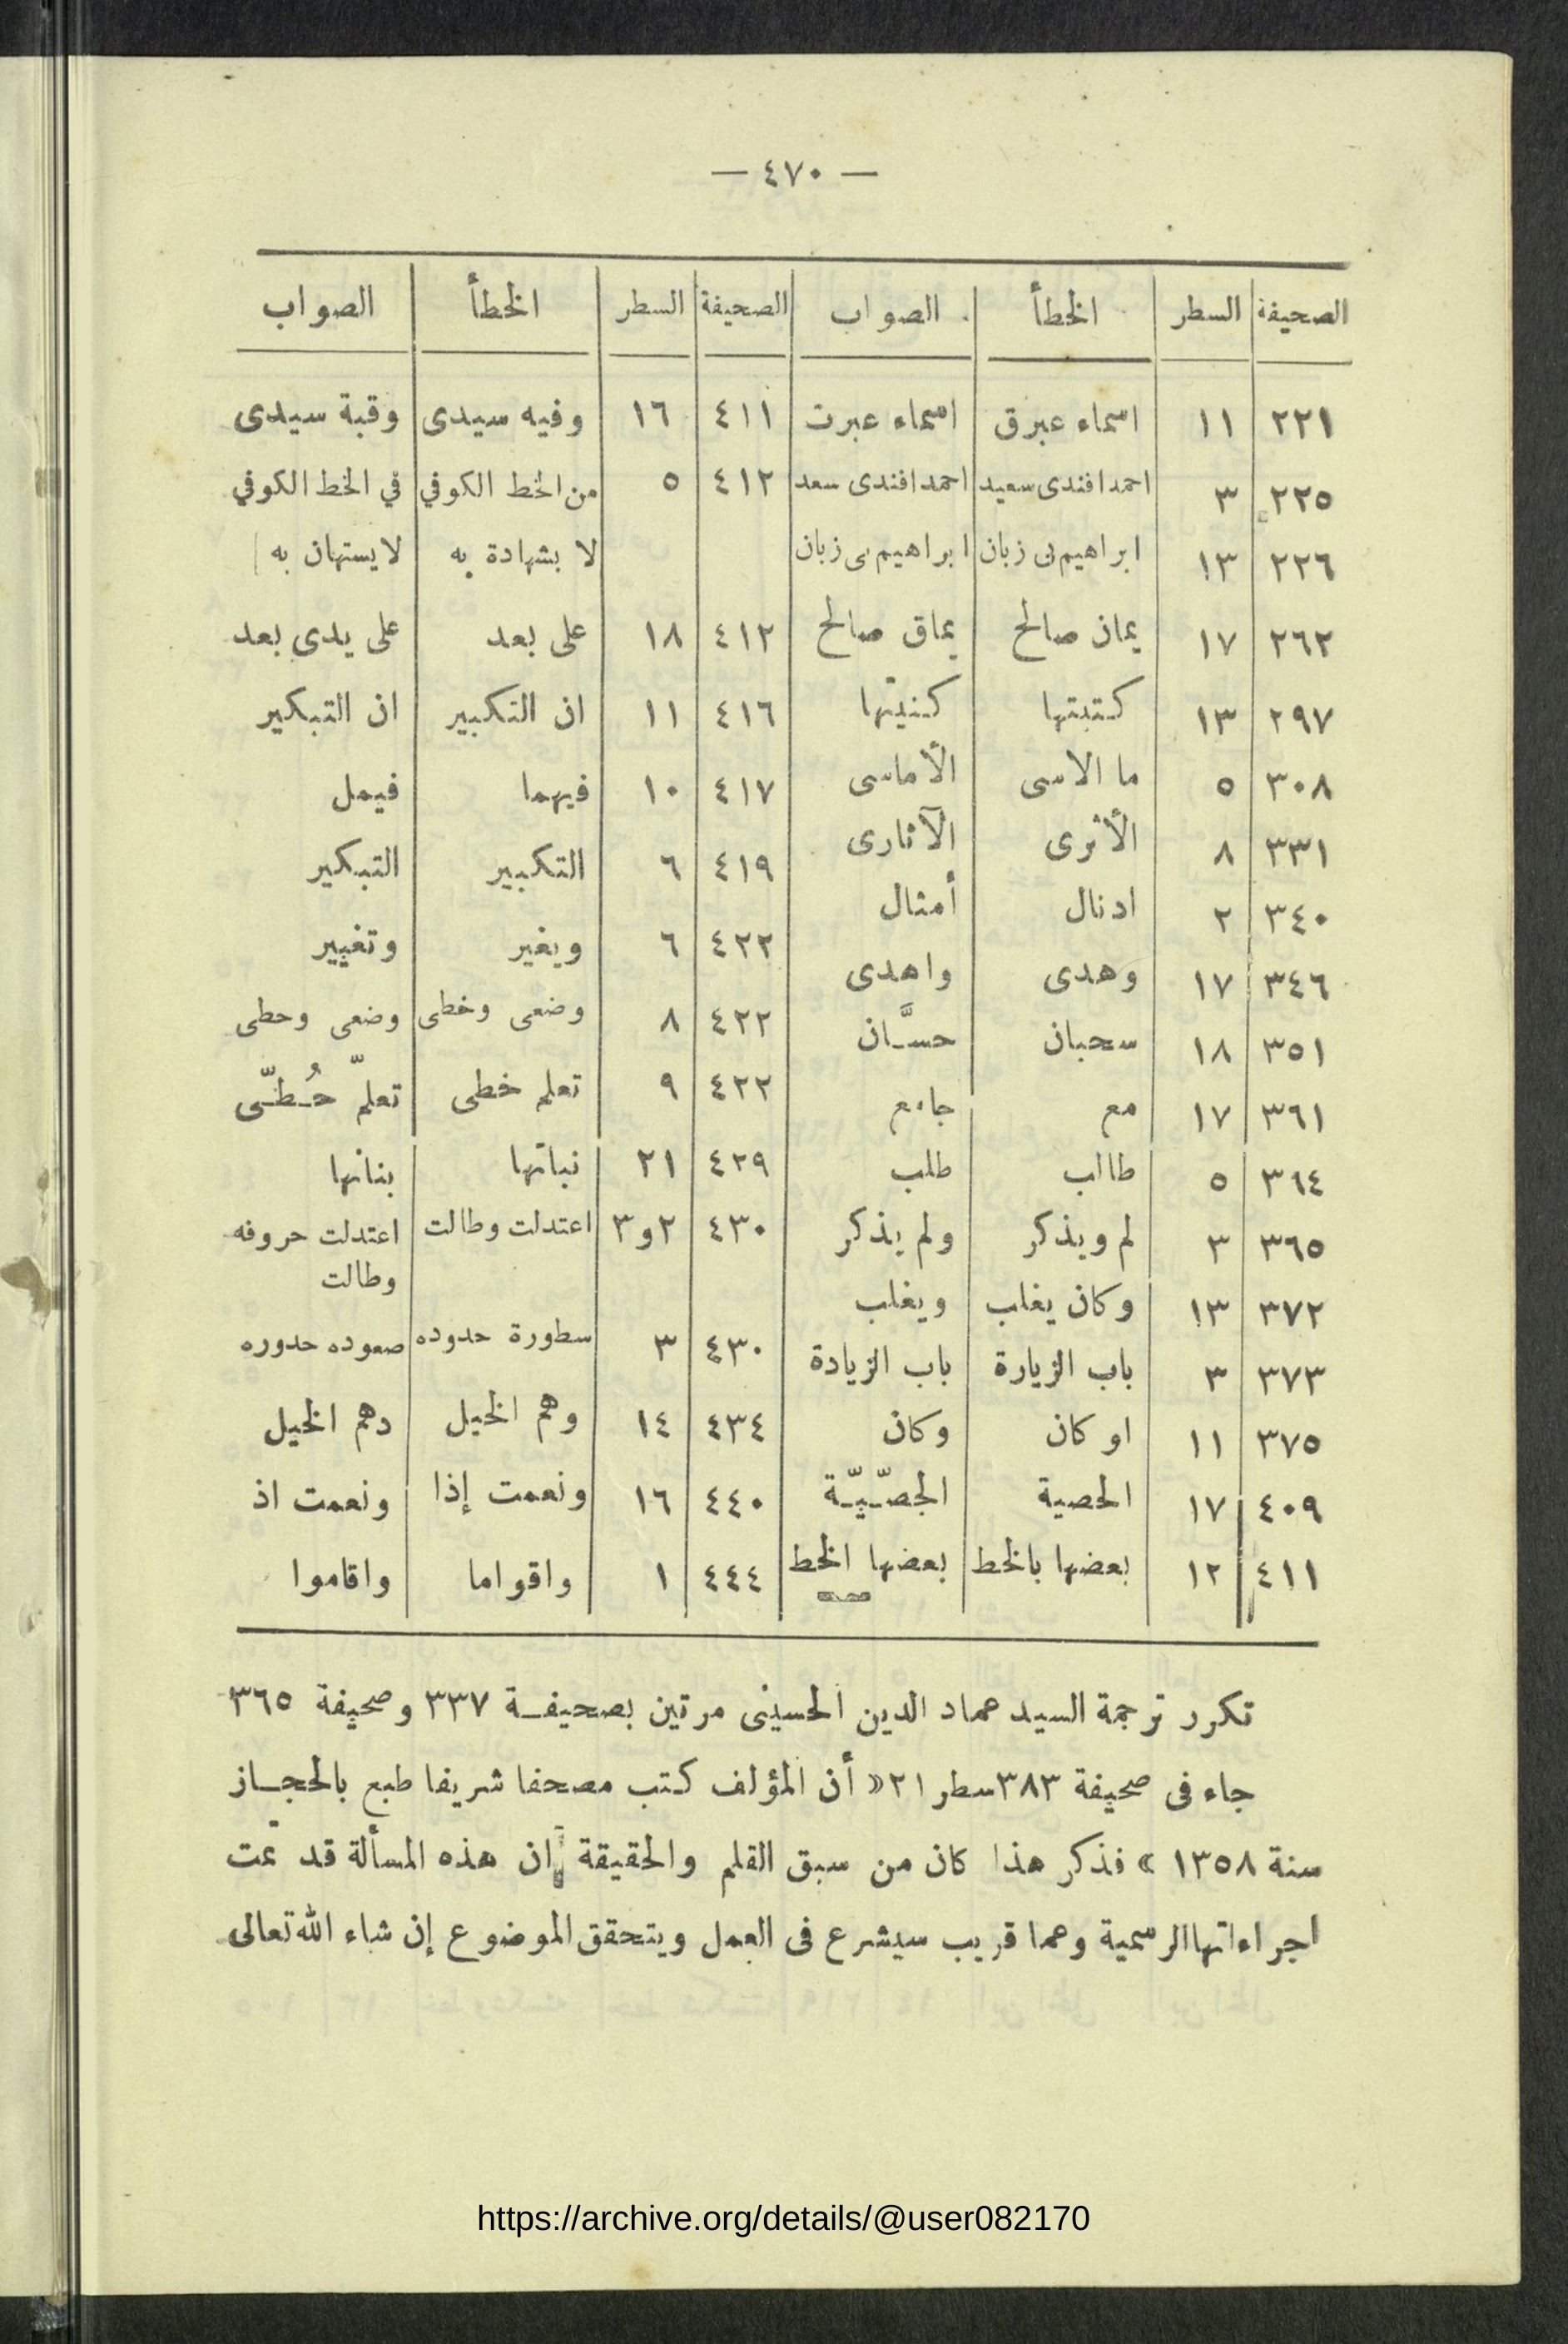 — ٤٧٠ —
الصحيفة السطر الخطأ الصواب الصحيفة السطر الخطأ الصواب
٢٢١ ١١ اسماء عبرق اسماء عبرت ٤١١ ١٦ وفيه سيدى وقبة سيدى
٢٢٥ ٣ احمد افندى سعيد احمد افندى سعد ٤١٢ ٥ من الخط الكوفي في الخط الكوفي
٢٢٦ ١٣ ابراهيم نى زبان ابراهيم بى زبان لا بشهادة به لا يستهان به
٢٦٢ ١٧ يمان صالح يماق صالح ٤١٢ ١٨ على بعد على يدى بعد
٢٩٧ ١٣ كتبتها كنيتها ٤١٦ ١١ ان التكبير ان التبكير
٣٠٨ ٥ ما الاسى الأماسى ٤١٧ ١٠ فيهما فيمل
٣٣١ ٨ الأثرى الآثارى ٤١٩ ٦ التكبير التبكير
٣٤٠ ٢ ادنال أمثال ٤٢٢ ٦ ويغير وتغيير
٣٤٦ ١٧ وهدى واهدى ٤٢٢ ٨ وضعى وخطى وضعى وحطى
٣٥١ ١٨ سحبان حسَّان ٤٢٢ ٩ تعلم خطى تعلمّ حُطّى
٣٦١ ١٧ مع جامع ٤٢٩ ٢١ نباتها بنانها
٣٦٤ ٥ طالب طلب ٤٣٠ ٢و٣ اعتدلت وطالت اعتدلت حروفه وطالت
٣٦٥ ٣ لم ويذكر ولم يذكر ٤٣٠ ٣ سطورة حدوده صعوده حدوره
٣٧٢ ١٣ وكان يغلب ويغلب ٤٣٤ ١٤ وهم الخيل دهم الخيل
٣٧٣ ٣ باب الزيارة باب الزيادة ٤٤٠ ١٦ ونعمت إذا ونعمت اذ
٣٧٥ ١١ او كان وكان ٤٤٤ ١ واقواما واقاموا
٤٠٩ ١٧ الحصية الجصّيّة
٤١١ ١٢ بعضها بالخط بعضها الخط
تكرر ترجمة السيد عماد الدين الحسينى مرتين بصحيفة ٣٣٧ وصحيفة ٣٦٥
جاء فى صحيفة ٣٨٣ سطر ٢١ « أن المؤلف كتب مصحفا شريفا طبع بالحجاز
سنة ١٣٥٨ » فذكر هذا كان من سبق القلم والحقيقة ان هذه المسألة قد تمت
اجراءاتها الرسمية وعما قريب سيشرع فى العمل ويتحقق الموضوع إن شاء الله تعالى
https://archive.org/details/@user082170